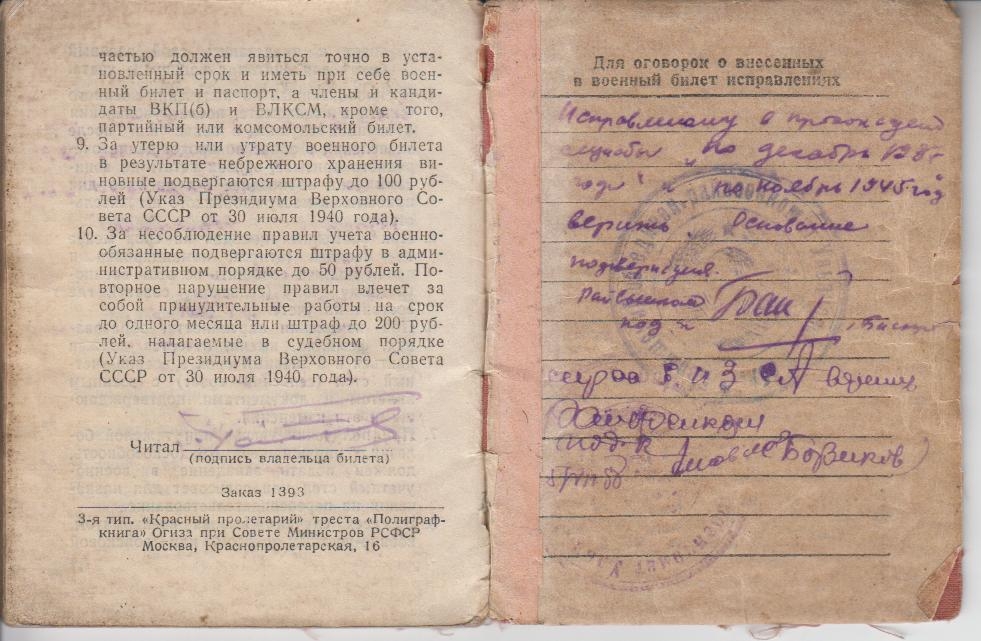 частью должен явиться точно в уста-
новленный срок и иметь при себе воен-
ный билет и паспорт, а члены и канди-
даты ВКП(б) и ВЛКСМ, кроме того,
партийный или комсомольский билет.
9. За утерю или утрату военного билета
в результате небрежного хранения ви-
новные подвергаются штрафу до 100 руб-
лей (Указ Президиума Верховного Со-
вета СССР от 30 июля 1940 года).
10. За несоблюдение правил учета военно-
обязанные подвергаются штрафу в адми-
нистративном порядке до 50 рублей. По-
вторное нарушение правил влечет за
собой принудительные работы на срок
до одного месяца или штраф до 200 руб-
лей, налагаемые в судебном порядке
(Указ Президиума Верховного Совета
СССР от 30 июля 1940 года).
Читал
(подпись владельца билета)
Заказ 1393
3-я тип. «Красный пролетарий» треста «Полиграф-
книга» Огиза при Совете Министров РСФСР
Москва, Краснопролетарская, 16
Для оговорок о внесенных
в военный билет исправлениях
Исправленному о прохожден
службы "по декабрь
года" и "по ноябрь 1945 год"
верить. Основание
подп-к